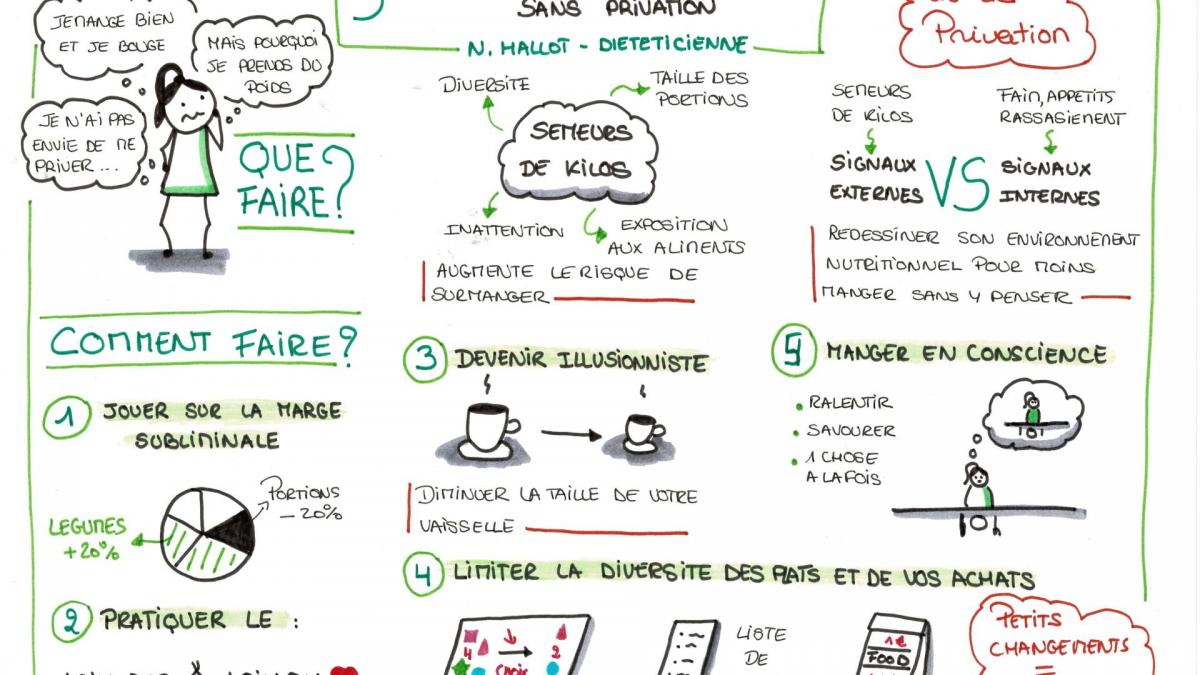 SANS PRIVATION
N. HALLOT - DIETETICIENNE
JE MANGE BIEN
ET JE BOUGE
MAIS POURQUOI
JE PRENDS DU
POIDS
JE N'AI PAS
ENVIE DE ME
PRIVER...
QUE
FAIRE?
DIVERSITE
TAILLE DES
PORTIONS
SEMEURS
DE KILOS
INATTENTION
EXPOSITION
AUX ALIMENTS
AUGMENTE LE RISQUE DE
SURMANGER
Privation
SEMEURS
DE KILOS
FAIM, APPETITS
RASSASIEMENT
SIGNAUX
EXTERNES
VS
SIGNAUX
INTERNES
REDESSINER SON ENVIRONNEMENT
NUTRITIONNEL POUR MOINS
MANGER SANS Y PENSER
COMMENT FAIRE?
1 JOUER SUR LA MARGE
SUBLIMINALE
PORTIONS
-20%
LEGUMES
+20%
2 PRATIQUER LE :
3 DEVENIR ILLUSIONNISTE
DIMINUER LA TAILLE DE VOTRE
VAISSELLE
5 MANGER EN CONSCIENCE
• RALENTIR
• SAVOURER
• 1 CHOSE
A LA FOIS
4 LIMITER LA DIVERSITE DES PLATS ET DE VOS ACHATS
4
2
CHOIX
LISTE
DE
1€
FOOD
PETITS
CHANGEMENTS
=